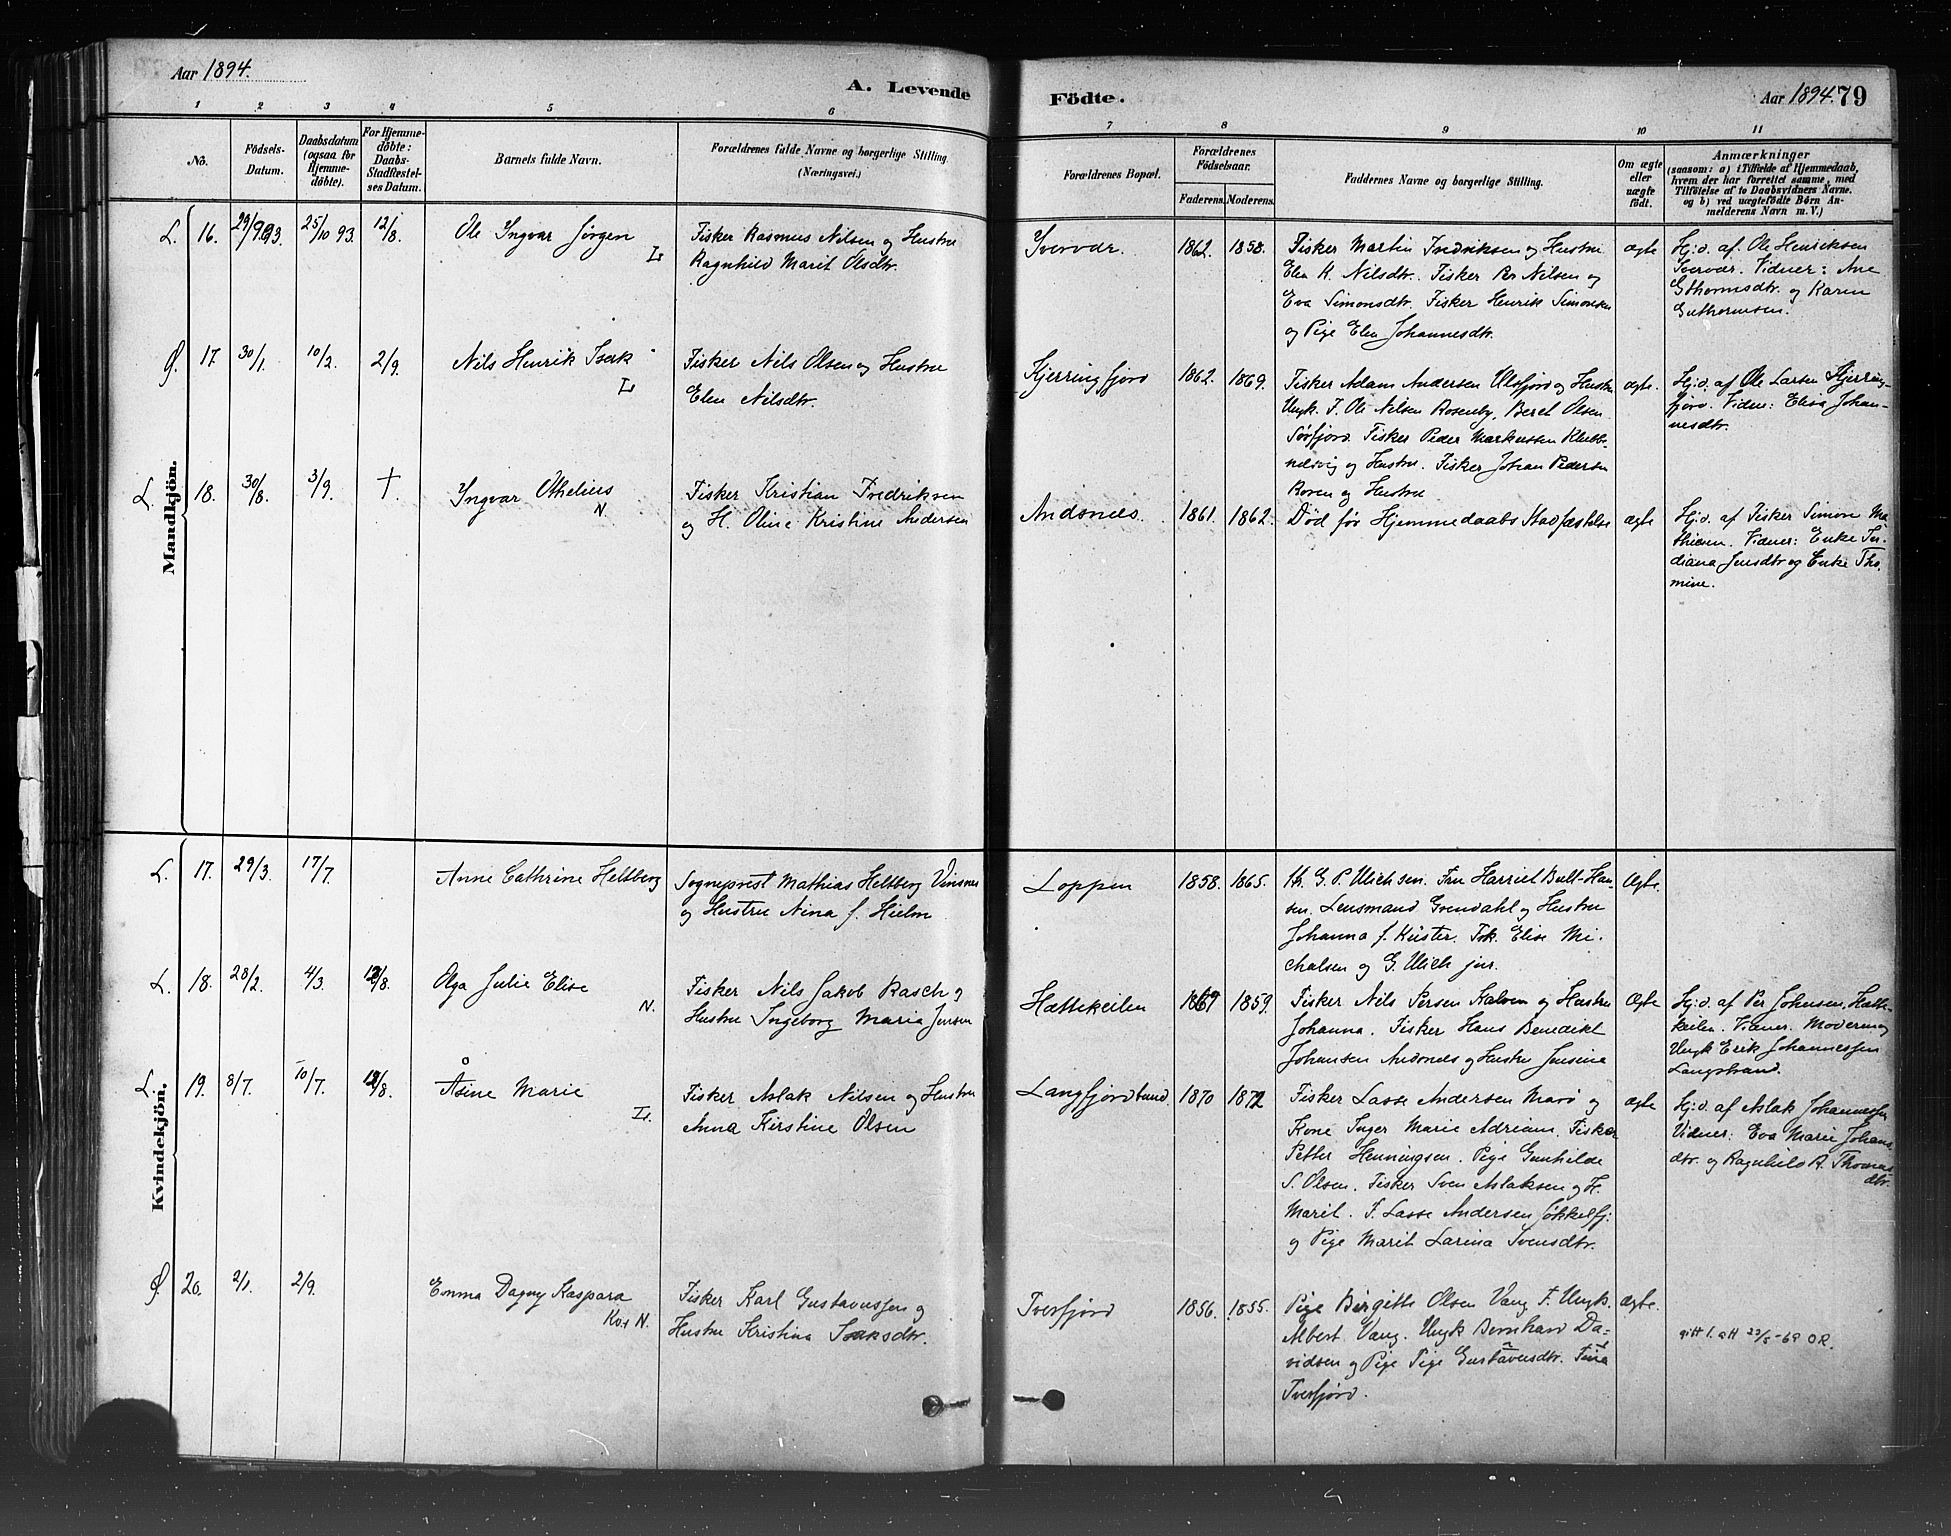 Aar 1894.
A. Levende
Födte.
Aar 1894. 79
1 2 3 4 5 6 7 8 9 10 11
No.
Födsels-
Datum.
Daabsdatum
(ogsaa for
Hjemme-
döbte).
For Hjemme-
döbte:
Daabs-
Stadfæstel-
ses Datum.
Barnets fulde Navn.
Forældrenes fulde Navne og borgerlige Stilling
(Næringsvei.)
Forældrenes Bopæl.
Forældrenes
Födselsaar.
Faderens. Moderens.
Faddernes Navne og borgerlige Stilling.
Om ægte
eller
uægte
födt.
Anmærkninger
(saasom: a) i Tilfælde af Hjemmedaab,
hvem der har forrettet samme, med
Tilföielse af to Daabsvidners Navne.
og b) ved uægtefödte Börn An-
melderens Navn m. V.)
Mandkjön.
L. 16. 29/9 93. 25/10 93. 12/8. Ole Ingvar Jørgen L
Fisker Rasmus Nilsen og Hustru
Ragnhild Marit Olsdtr.
1862. 1858.
Fisker Martin Fredriksen og Hustru
Elen K. Nilsdtr. Fisker Per Nilsen og
Eva Simonsdtr. Fisker Henrik Simonsen
og Pige Elen Johannesdtr.
ægte
Hj.d. af Ole Henriksen
Vidner: Ane
Gthormsdtr. og Karen
Guthormsen.
Ø. 17 30/1. 10/2. 2/9. Nils Henrik Isak L
Fisker Nils Olsen og Hustru
Elen Nilsdtr.
Kjerringfjord 1862. 1869.
Fisker Adam Andersen Ulsfjord og Hustru
Ungk. F. Ole Nilsen Rosenby, Beret Olsen
Sørfjord. Fisker Peder Markussen Klubb-
nesvig og Hustru. Fisker Johan Pedersen
og Hustru
ægte.
Hj.d. af Ole Larsen Kjerring-
fjord. Vidner: Elisa Johan-
nesdtr.
L. 18. 30/8. 3/9. †. Ingvar Othelius N
Fisker Kristian Fredriksen
og H. Oline Kristine Andersen
Andsnes. 1861. 1862.
Død før Hjemmedaabs Stadfæstelse
ægte
Hj.d. af Fisker Simon Ma
thisen. Vidner: Enke
diana Jensdtr og Enke Tho
mine.
Kvindekjön.
L. 17. 29/3. 17/7. Anne Cathrine Heltberg
Sogneprest Mathias Heltberg Vinsnes
og Hustru Nina f. Hielm
Loppen 1858. 1865.
Hr. G. P. Ulichsen. Fru Harriet Bull-Han-
sen. Lensmand Grendahl og Hustru
Johanna f. Küster. Frk. Elise Mi-
chalsen og G. Ulich jur.
Ægte.
L. 18. 28/2. 4/3. 12/8. Olga Julie Elise N.
Fisker Nils Jakob Rasch og
Hustru Ingeborg Maria Jensen
Hattekeilen 1869 1859.
Fisker Nils Persen Kalven og Hustru
Johanna. Fisker Hans Benedikt
Johansen Andsnes og Hustru Jensine
Ægte
Hj.d. af Per Johnsen, Hatte
keilen. Vidner. Moderen og
Ungk Erik Johannessen
Langstrand.
L. 19. 8/7. 10/7. 12/8. Åsine Marie L.
Fisker Aslak Nilsen og Hustru
Anna Kirstine Olsen
Langfjordbund. 1870 1872
Fisker Lasse Andersen Marø og
Kone Inger Marie Adrians. Fisker
Petter Henningsen. Pige Gunhilde
S. Olsen. Fisker Sven Aslaksen og H.
Marit. F. Lasse Andersen Jøkkelfj.
og Pige Marit Larina Svensdtr.
ægte
Hj.d. af Aslak Johannessen
Vidner: Eva Marie Johans
dtr. og Ragnhild A. Thomas
dtr.
Ø. 20. 2/1. 2/9. Emma Dagny Kaspara
Kv. N.
Fisker Karl Gustavussen og
Hustru Kristina Isaksdtr.
Tverfjord 1856. 1855.
Pige Birgitte Olsen Vang. F. Ungk.
Albert Vang. Ungk Bernhard Da-
vidsen og Pige Pige Gustavusdtr. Tina
Tverfjord.
ægte.
gitt l. att 23/5-69 O.R.